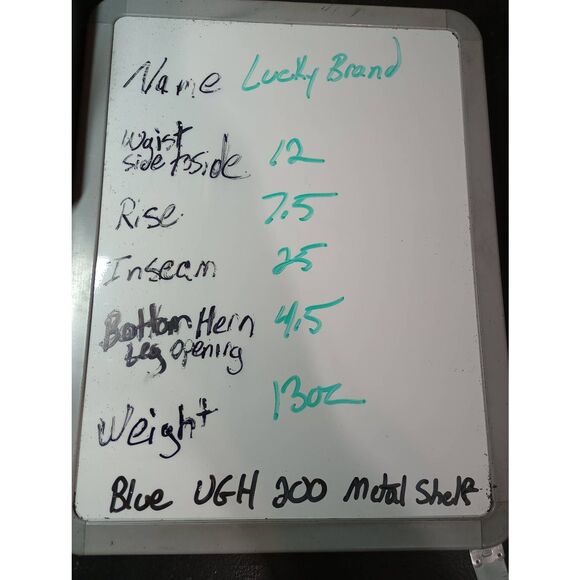 Name Lucky Brand
Waist
side to side 12
Rise 7.5
Inseam 25
Bottom Hem 4.5
Leg opening
Weight 13oz
Blue UGH 200 Metal Shelf